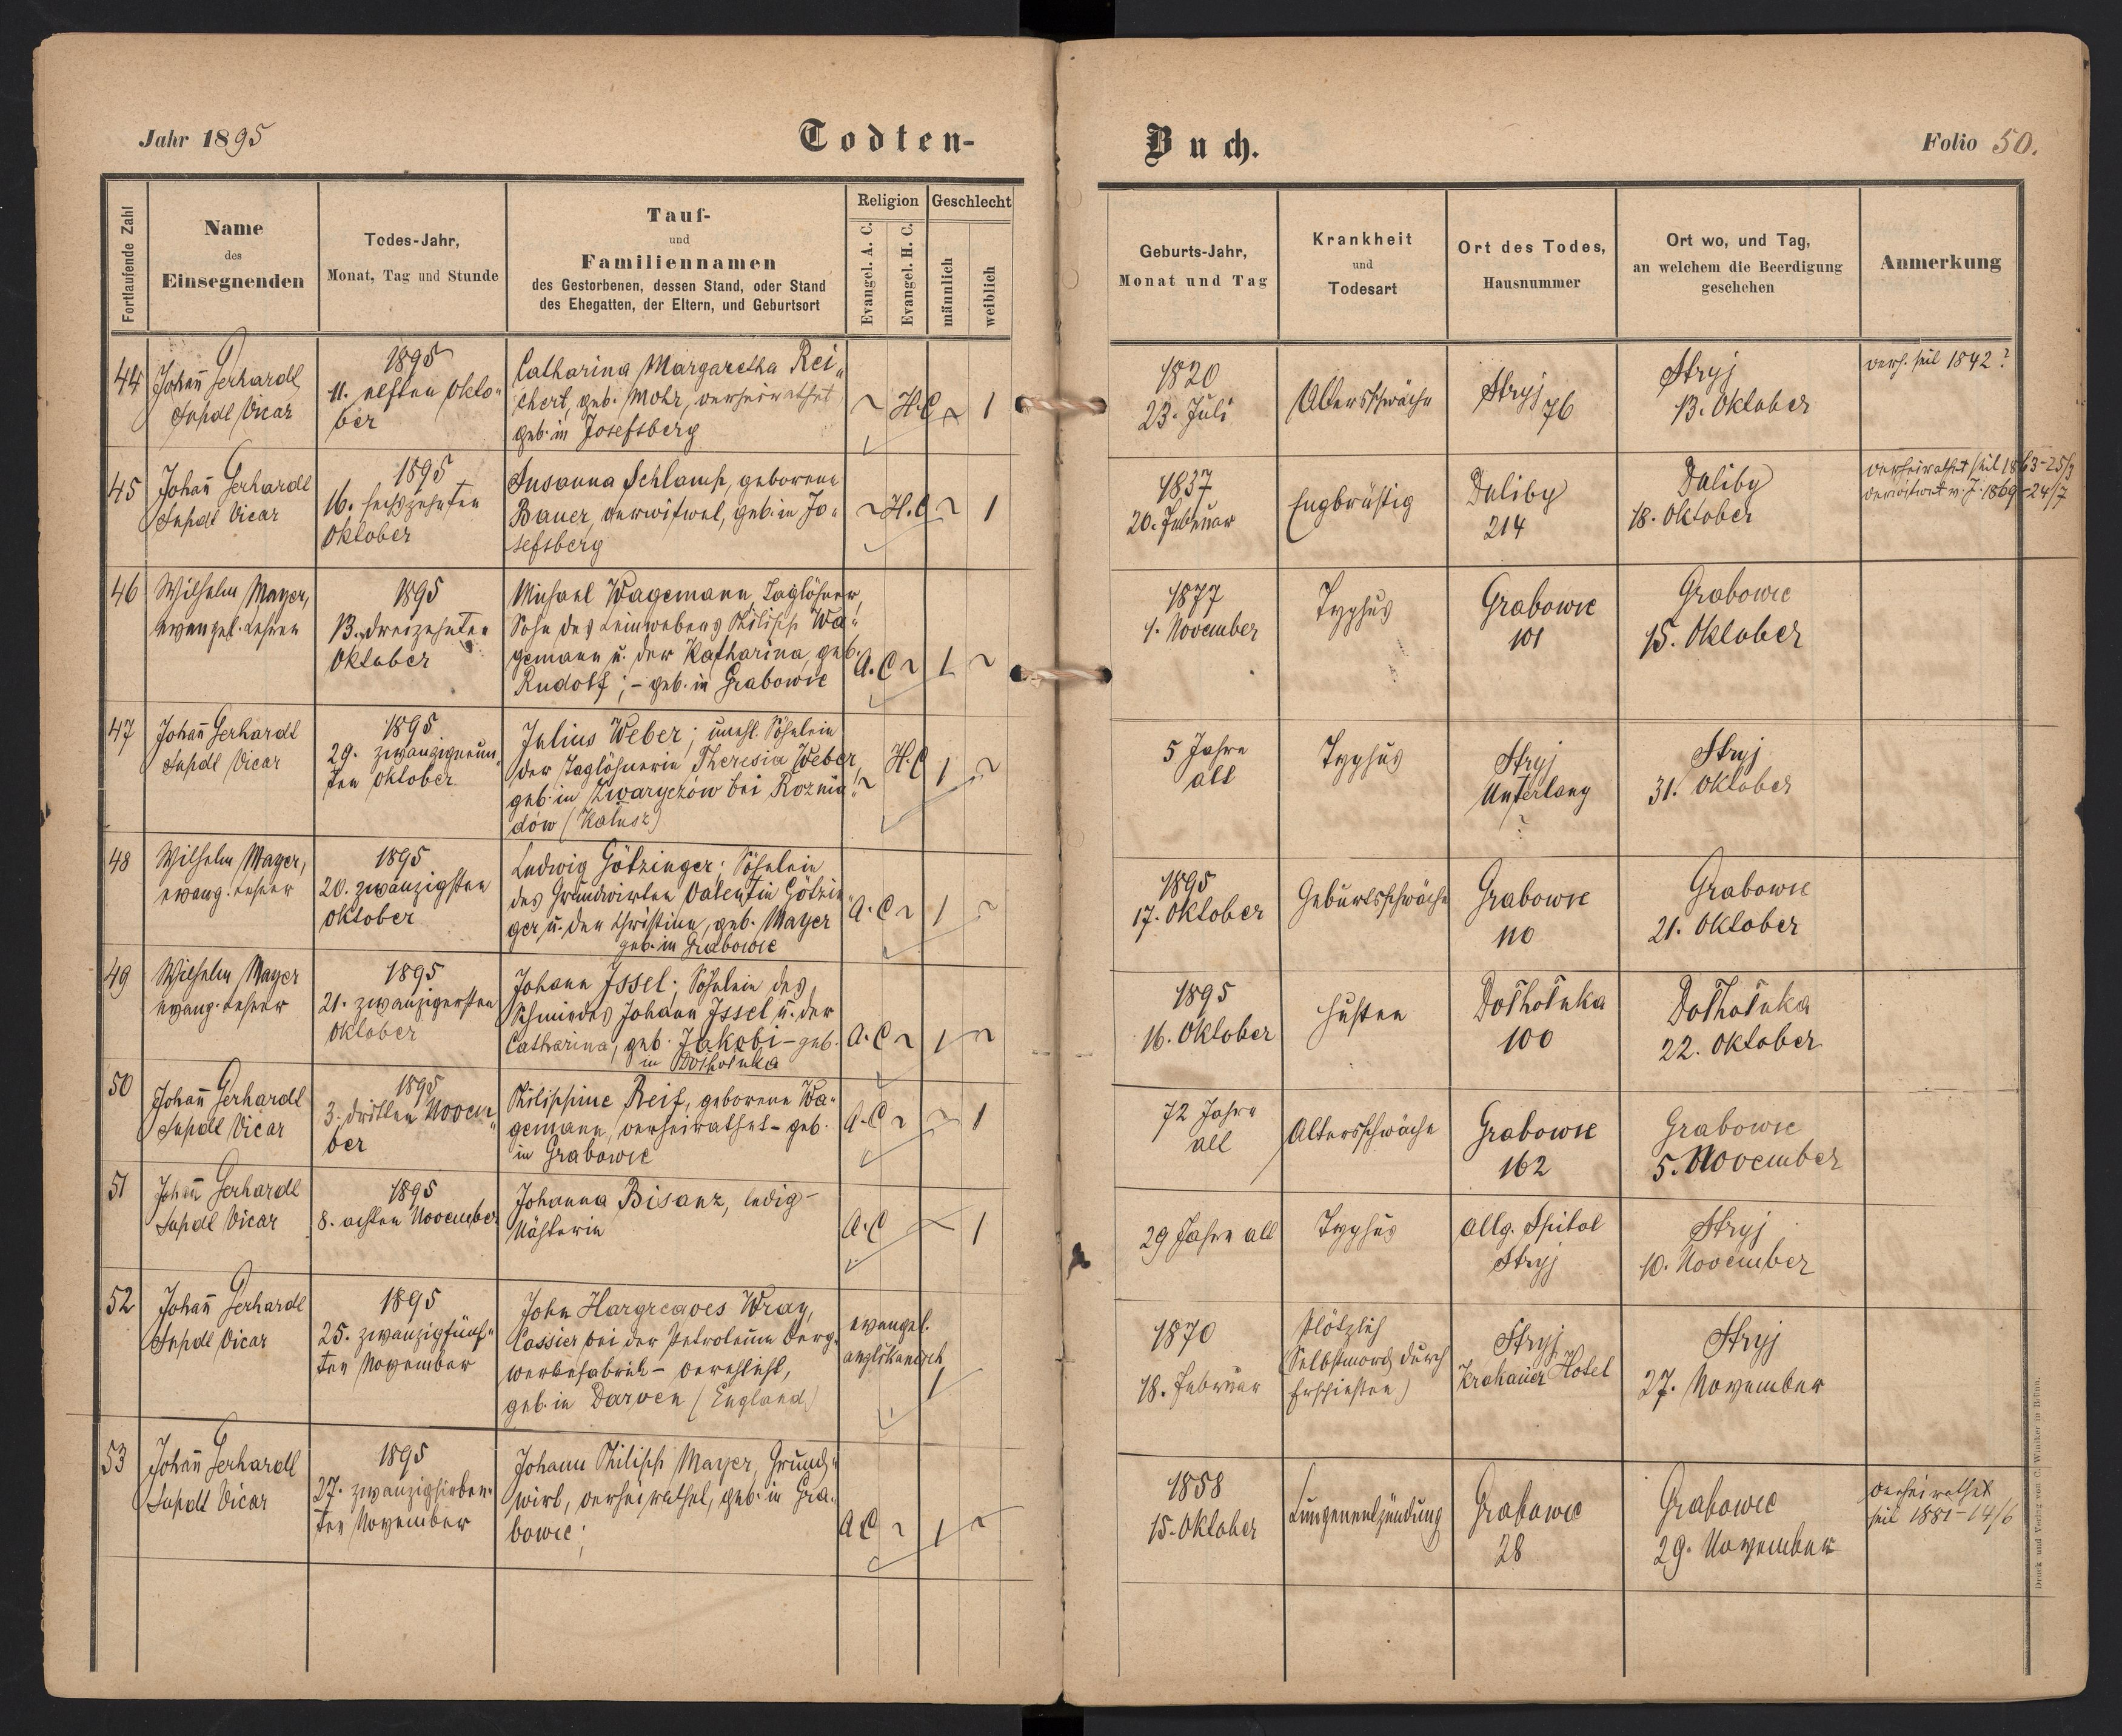 Jahr 1895
Todten-
Buch.
Folio 50.
Fortlaufende Zahl
Name
des
Einsegnenden
Todes-Jahr,
Monat, Tag und Stunde
Tauf-
und
Familiennamen
des Gestorbenen, dessen Stand, oder Stand
des Ehegatten, der Eltern, und Geburtsort
Religion
Evangel. A. C.
Evangel. H. C.
Geschlecht
männlich
weiblich
Geburts-Jahr,
Monat und Tag
Krankheit
und
Todesart
Ort des Todes,
Hausnummer
Ort wo, und Tag,
an welchem die Beerdigung
geschehen
Anmerkung
44
Johañ Gerhardt
Supdt Vicar
1895
11. elften Okto-
ber
Catharina Margaretha Rei-
chert, geb. Mohr, verheirathet
geb. in Josefsberg
~ H.C ~ 1
1820
23. Juli
Altersschwäche
Stryj
76
Stryj
13. Oktober
verh. seit 1842?
45
Johañ Gerhardt
Supdt Vicar
1895
16. sechszehnten
Oktober
Susanna Schlamp, geborene
Bauer, verwitwet, geb. in Jo-
sefsberg
~ H.C ~ 1
1837
20. Februar
Engbrüstig
Duliby
214
Duliby
18. Oktober
verheirathet seit 1863-25/3
verwitwet v. J. 1869-24/7
46
Wilhelm Mayer,
evangel. Lehrer
1895
13. dreizehnten
Oktober
Michael Wagemann, Taglöhner,
Sohn des Leinwebers Philipp Wa-
gemann u. der Katharina, geb.
Rudolf; - geb. in Grabowce
A.C ~ 1 ~
1877
1. November
Typhus
Grabowce
101
Grabowce
15. Oktober
47
Johañ Gerhardt
Supdt Vicar
1895
29. zwanzigneun-
ten Oktober
Julius Weber; unehl. Söhnlein
der Taglöhnerin Theresia Weber,
geb. in Zwaryczów bei Roznia-
dów (Kałusz)
~ H.C 1 ~
5 Jahre
alt
Typhus
Stryj
Unterlany
?
Stryj
31. Oktober
48
Wilhelm Mayer,
evang. Lehrer
1895
20. zwanzigsten
Oktober
Ludwig Götzinger; Söhnlein
des Grundwirten Valentin Götzin-
ger u. der Christine, geb. Mayer
geb. in Grabowce
A.C ~ 1 ~
1895
17. Oktober
Geburtsschwäche
Grabowce
110
Grabowce
21. Oktober
49
Wilhelm Mayer
evang. Lehrer
1895
21. zwanzigersten
Oktober
Johann Issel; Söhnlein des
Schmiedes Johann Issel u. der
Catharina, geb. Jakobi - geb.
in Dołhołuka
A.C ~ 1 ~
1895
16. Oktober
Husten
Dołhołuka
100
Dołhołuka
22. Oktober
50
Johañ Gerhardt
Supdt Vicar
1895
3. dritten Novem-
ber
Philippine Reif, geborene Wa-
gemann, verheirathet - geb.
in Grabowce
A.C ~ ~ 1
72 Jahre
alt
Altersschwäche
Grabowce
162
Grabowce
5. November
51
Johañ Gerhardt
Supdt Vicar
1895
8. achten November
Johanna Bisanz, ledig -
Nähterin
A.C ~ 1
29 Jahre alt
Typhus
allg. Spital
Stryj
Stryj
10. November
52
Johañ Gerhardt
Supdt Vicar
1895
25. zwanzigfünf-
ten November
John Hargreaves Wray,
Cassier bei der Petroleum Berg-
werksfabrik - verehlicht,
geb. in Darven (England)
evangel.
anglikanisch
1
1870
18. Februar
Plötzlich
(Selbstmord durch
Erschießen)
Stryj
Krakauer Hotel
Stryj
27. November
53
Johañ Gerhardt
Supdt Vicar
1895
27. zwanzigsieben-
ten November
Johann Philipp Mayer, Grund-
wirt, verheirathet, geb. in Gra-
bowce;
A.C ~ 1 ~
1858
15. Oktober
Lungenentzündung
Grabowce
28
Grabowce
29. November
verheirathet
seit 1881-14/6
Druck und Verlag von C. Winiker in Brünn.